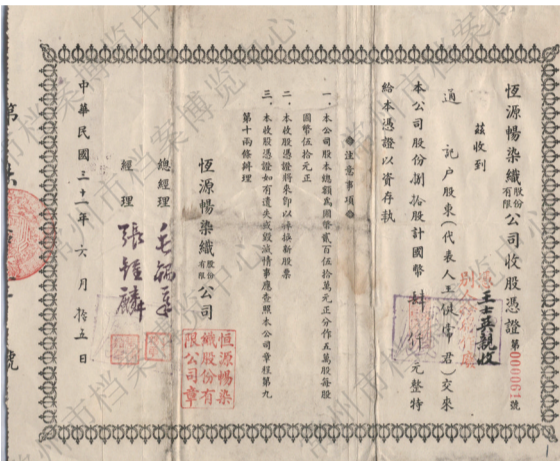 恆源暢染織股份有限公司收股憑證
第0000061號
王士英親收
茲收到
通記户股東(代表人王 君)交來
本公司股份捌拾股計國幣肆仟元整特
給本憑證以資存執
◎注意事項◎
一、本公司股本總額萬國幣貳百伍拾萬元正分作五萬股每股
國幣伍拾元正
二、本收股憑證將來即以掉換新股票
三、本收股憑證如有遺失或毀滅情事應查照本公司章程第九
第十兩條辦理
恆源暢染織股份有限公司
總經理
經理 張 麟
恆源暢染
織股份有
限公司章
中華民國三十一年六月拾五日
第 號
常州市档案博览中心